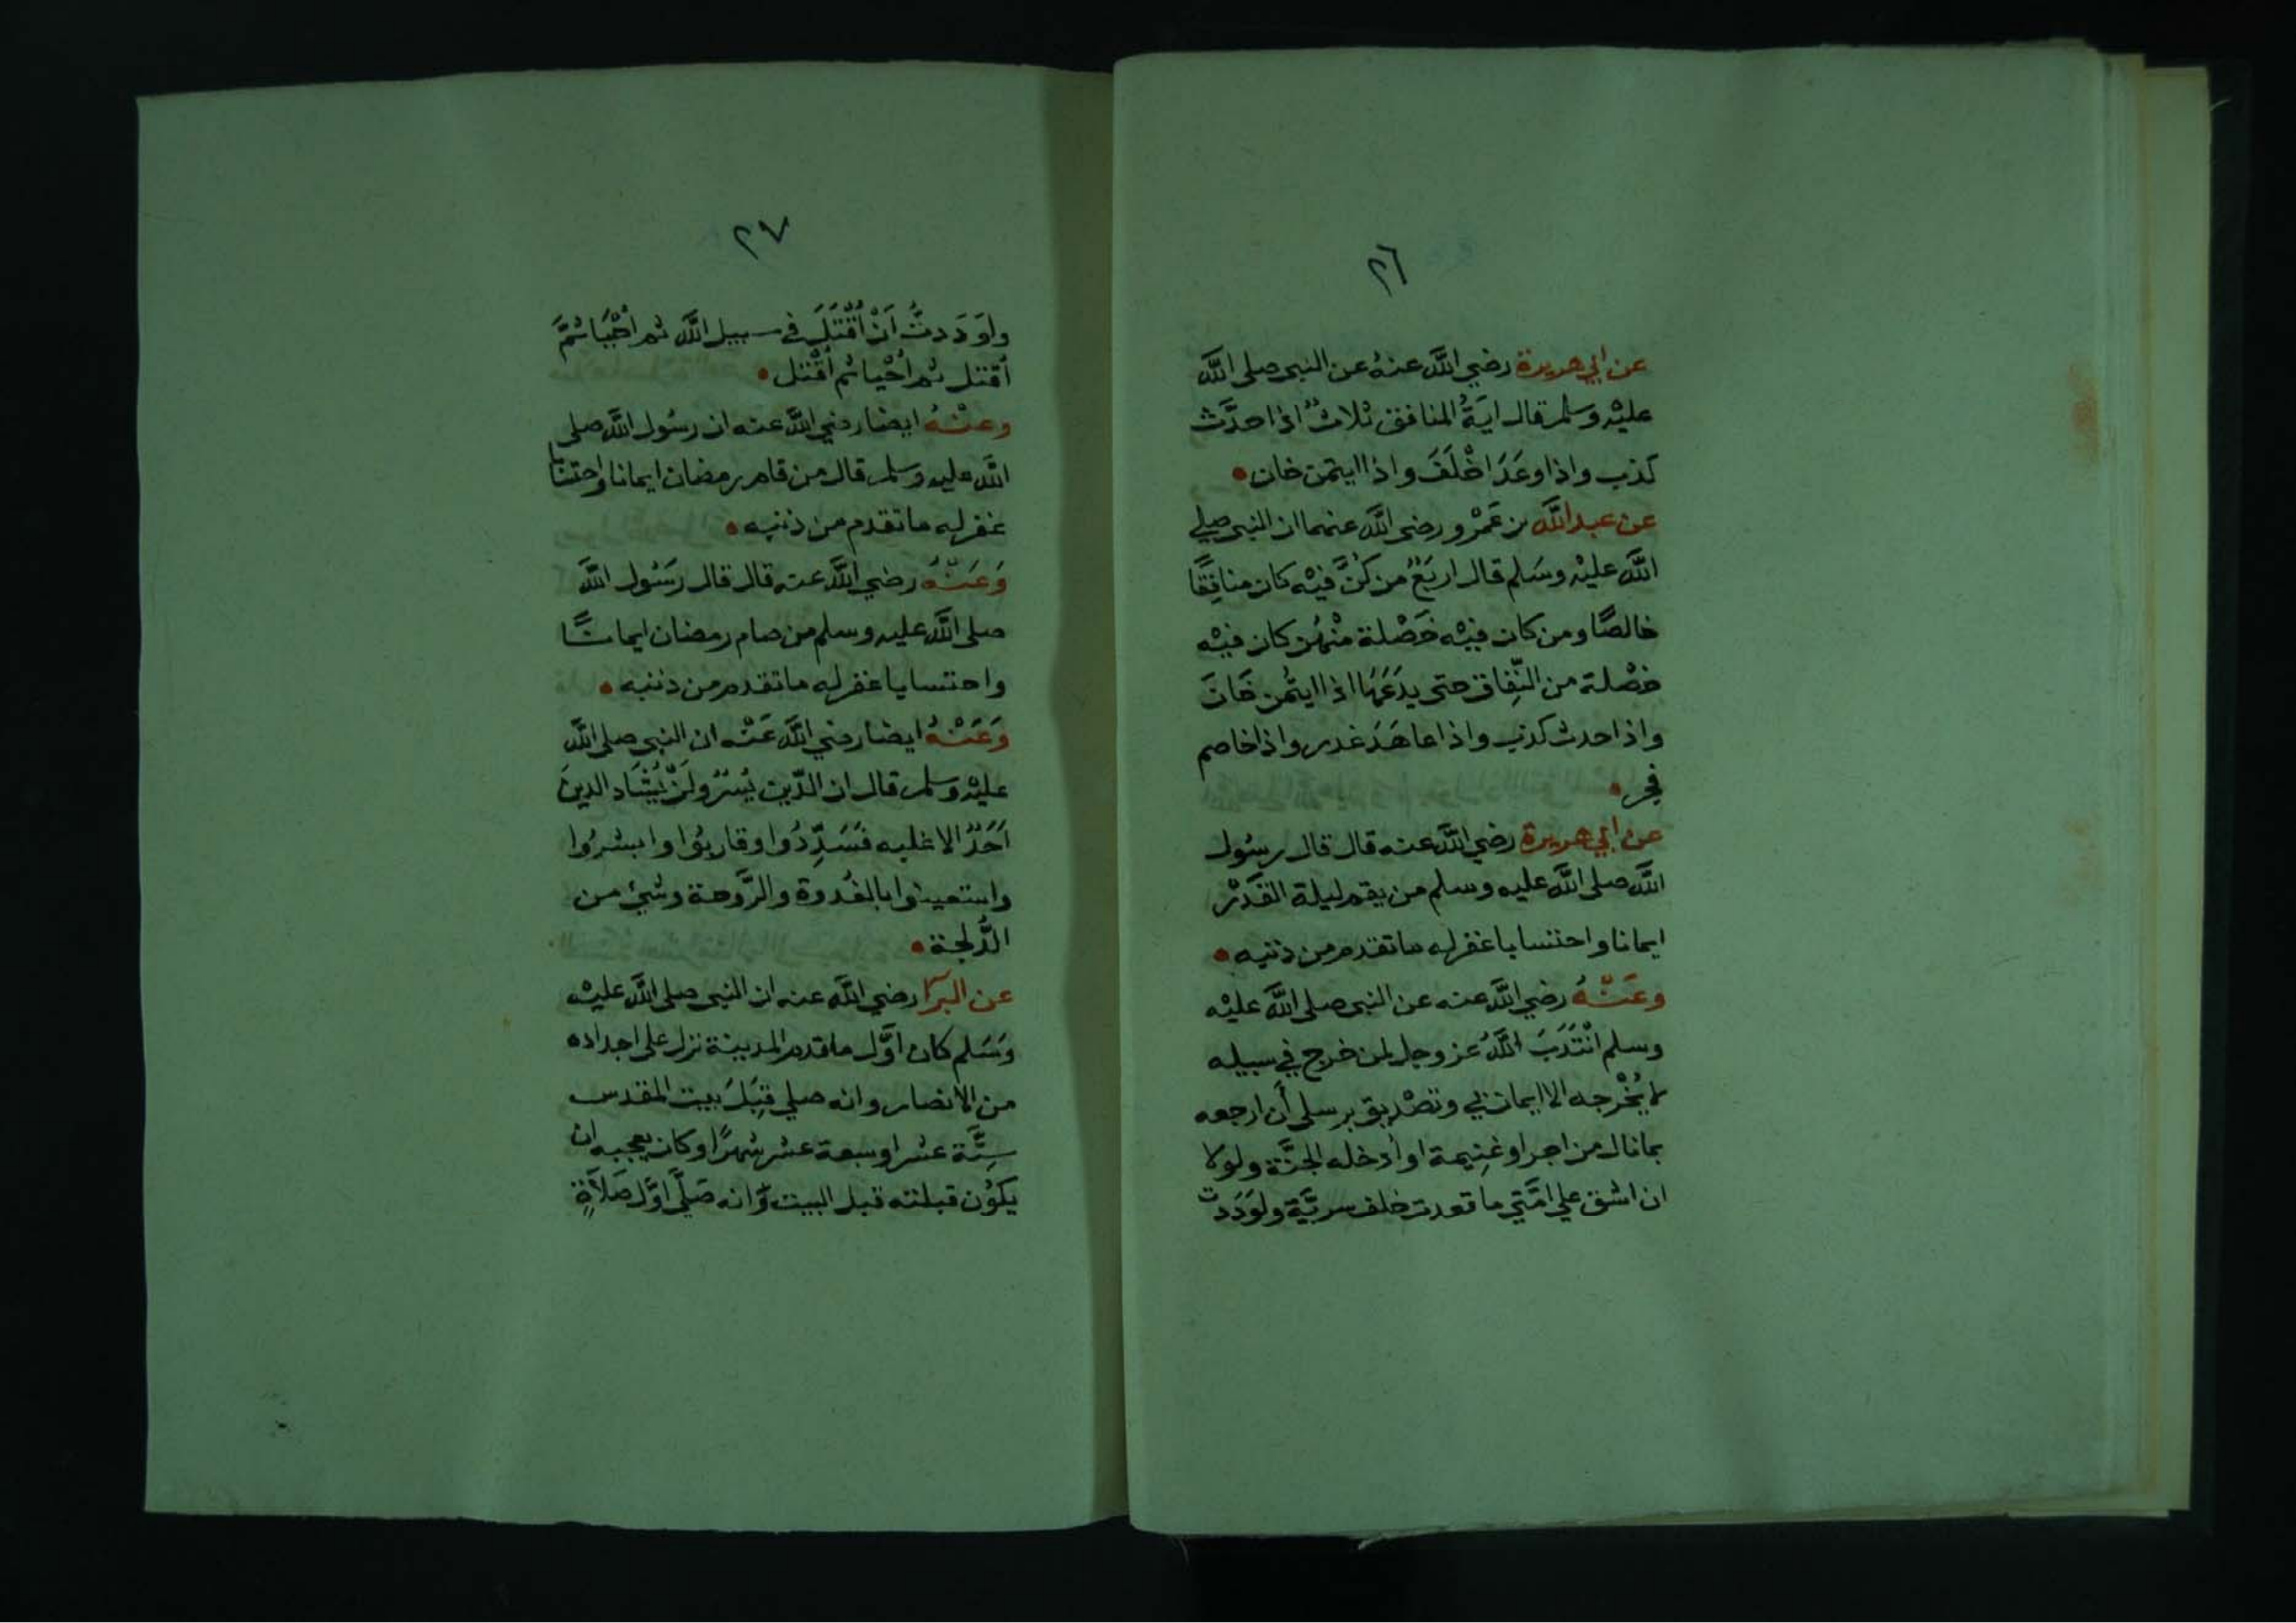 ٢٦
عن ابي هريرة رضي اللَّه عنهُ عن النبى صلى اللَّه
عليْه وسلم قال ايَةُ المنافق ثلاثٌ اذا حدَّث
كذب واذا وعَدَ اخْلَفَ واذا ايتمن خان
عن عبد اللَّه بن عَمْرو رضى اللَّه عنهما ان النبى صلي
اللَّه عليْه وسَلم قال اربَعٌ من كنَّ فيْه كان منافِقًا
خالصًا ومن كان فيْه خَصْلة منْهُن كان فيْه
خصْلة من النِّفاق حتى يدَعَهَا اذا ايتُمن خَانَ
واذا حدث كذب واذا عاهَدَ غدر واذا خاصم
فجر
عن ابي هريرة رضي اللَّه عنه قال قال رسُول
اللَّه صلى اللَّه عليه وسلم من يقم ليلة القَدْر
ايمانا واحتسابا غفر له ماتقدم من ذنبه
وعَنْهُ رضي اللَّه عنه عن النبى صلى اللَّه عليْه
وسلم انْتَدَبَ اللَّهُ عز وجل لمن خرج في سبيله
لا يُخْرجه الا ايمان بي وتصْديق برسلي أن ارجعه
بما نال من اجر او غنِيمة او أدخله الجنَّة ولولا
ان اشق علي امَّتي ما قعدت خلف سريَّة ولوَدَدت
٢٧
ولوَدَدتُّ اَنْ اُقْتَلَ في سبيل اللَّه ثم اُحْيَا ثمَّ
اُقتل ثم اُحْيا ثم اُقْتل
وعنْهُ ايضا رضي اللَّه عنه ان رسُول اللَّه صلى
اللَّه عليه وسلم قال من قام رمضان ايمانا واحتسَابا
غفر له ما تقدم من ذنبه
وَعَنْهُ رضي اللَّه عنه قال قال رسَُول اللَّه
صلى اللَّه عليه وسلم من صام رمضان ايمانًا
واحتسابا غفر له ما تقدم من ذنبه
وَعَنْهُ ايضا رضي اللَّه عَنْه ان النبي صلى اللَّه
عليْه وسلم قال ان الدّين يُسْرٌ ولَنْ يُشَاد الدينَ
اَحَدٌ الا غلبه فسَدِّدُوا وقاربُوا وابشرُوا
واستعينوا بالغُدوة والرَّوحة وشيْ من
الدُّلجة
عن البرآ رضي اللَّه عنه ان النبى صلى اللَّه عليْه
وسَلم كان اوَّل ما قدم المدينة نزل على اجداده
من الانصار وانه صلي قِبَلَ بيت المقدس
سِتَّة عشر او سبعة عشر شهرًا وكان يعجبه ان
يكوُن قبلته قبل البيت وَّانه صَلَّى اوَّل صَلَاةٍ